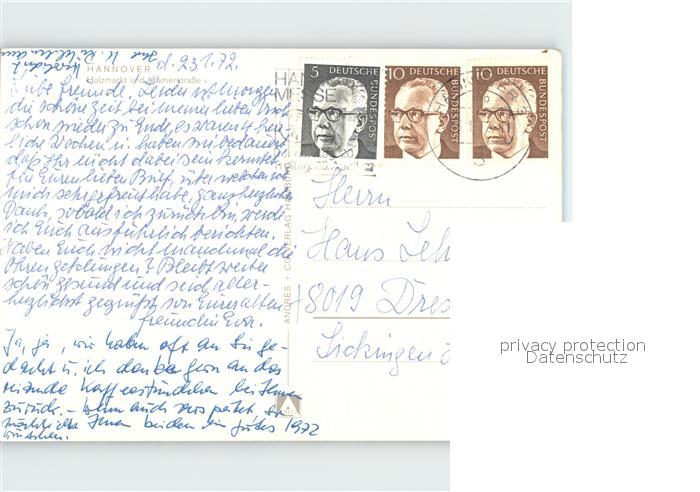 d. 23.1.72.
HANNOVER
Holzmarkt und Kramerstraße
Liebe Freunde. Leider ist morgen
die schöne Zeit bei meiner lieben
schon wieder zu Ende, es waren 4 herr-
liche Wochen u. haben nur bedauert
daß Ihr nicht dabei sein konntet
Für Euren lieben Brief über welchen ich
mich sehr gefreut habe, ganz herzlichen
Dank, sobald ich zurück bin, werde
ich Euch ausführlich berichten.
Haben Euch nicht manchmal die
Ohren geklungen? Bleibt weiter
schön gesund und seid aller-
herzlichst gegrüßt von Eurer alten
Freundin Eva.
Ja, ja, wir haben oft an Sie ge-
dacht u. ich denke gern an das
reizende Kaffeestündchen bei Ihnen
zurück. – Wenn auch verspätet, so
möchte ich Ihnen beiden ein gutes 1972
wünschen.
ANDRES + CO VERLAG HAMBURG
5 DEUTSCHE BUNDESPOST
10 DEUTSCHE BUNDESPOST
10 DEUTSCHE BUNDESPOST
MESSE
Herrn
Hans Leh
8019 Dres
Sickingen
privacy protection
Datenschutz